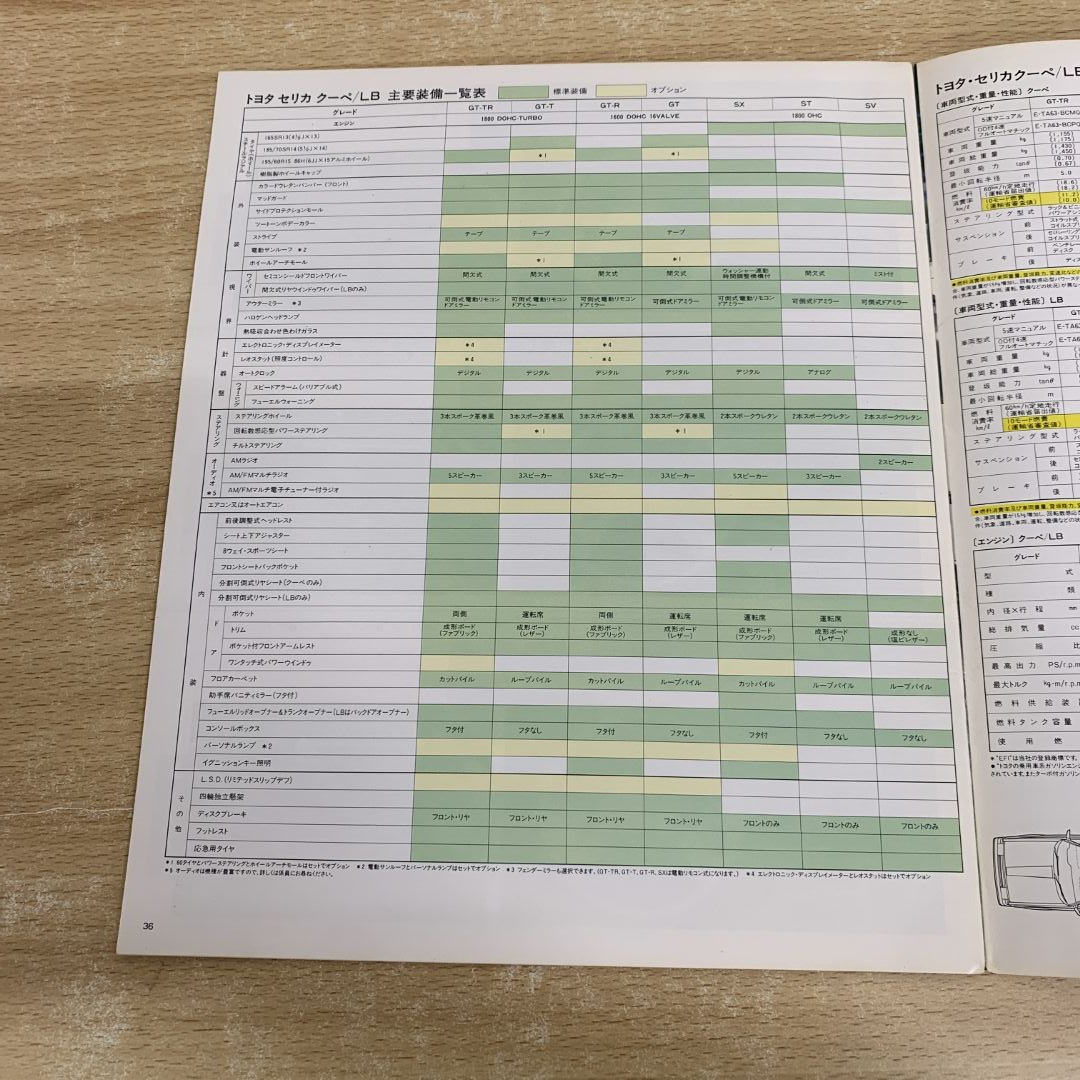 トヨタ セリカ クーペ/LB 主要装備一覧表 標準装備 オプション
グレード GT-TR GT-T GT-R GT SX ST SV
エンジン 1800 DOHC-TURBO 1600 DOHC 16VALVE 1800 OHC
165SR13(4½J×13)
185/70SR14(5½J×14)
195/60R15 86H(6JJ×15アルミホイール) *1 *1
樹脂製ホイールキャップ
外装
カラードウレタンバンパー(フロント)
マッドガード
サイドプロテクションモール
ツートーンボデーカラー
ストライプ テープ テープ テープ テープ
電動サンルーフ *2
ホイールアーチモール *1 *1
視界
ワイパー
セミコンシールドフロントワイパー 間欠式 間欠式 間欠式 間欠式 ウォッシャー連動時間調整機構付 間欠式 ミスト付
間欠式リヤウインドゥワイパー(LBのみ)
アウターミラー *3 可倒式電動リモコンドアミラー 可倒式電動リモコンドアミラー 可倒式電動リモコンドアミラー 可倒式ドアミラー 可倒式電動リモコンドアミラー 可倒式ドアミラー 可倒式ドアミラー
ハロゲンヘッドランプ
熱吸収合わせ色わけガラス
計器盤
エレクトロニック・ディスプレイメーター *4 *4
レオスタット(照度コントロール) *4 *4
オートクロック デジタル デジタル デジタル デジタル デジタル アナログ
ウォーニング
スピードアラーム(バリアブル式)
フューエルウォーニング
ステアリング
ステアリングホイール 3本スポーク革巻風 3本スポーク革巻風 3本スポーク革巻風 3本スポーク革巻風 2本スポークウレタン 2本スポークウレタン 2本スポークウレタン
回転数感応型パワーステアリング *1 *1
チルトステアリング
オーディオ *5
AMラジオ 2スピーカー
AM/FMマルチラジオ 5スピーカー 3スピーカー 5スピーカー 3スピーカー 5スピーカー 3スピーカー
AM/FMマルチ電子チューナー付ラジオ
エアコン又はオートエアコン
内装
前後調整式ヘッドレスト
シート上下アジャスター
8ウェイ・スポーツシート
フロントシートバックポケット
分割可倒式リヤシート(クーペのみ)
分割可倒式リヤシート(LBのみ)
ドア
ポケット 両側 運転席 両側 運転席 運転席 運転席
トリム 成形ボード(ファブリック) 成形ボード(レザー) 成形ボード(ファブリック) 成形ボード(レザー) 成形ボード(ファブリック) 成形ボード(レザー) 成形なし(塩ビレザー)
ポケット付フロントアームレスト
ワンタッチ式パワーウインドゥ
フロアカーペット カットパイル ループパイル カットパイル ループパイル カットパイル ループパイル ループパイル
助手席バニティミラー(フタ付)
フューエルリッドオープナー&トランクオープナー(LBはバックドアオープナー)
コンソールボックス フタ付 フタなし フタ付 フタなし フタ付 フタなし フタなし
パーソナルランプ *2
イグニッションキー照明
その他
L.S.D.(リミテッドスリップデフ)
四輪独立懸架
ディスクブレーキ フロント・リヤ フロント・リヤ フロント・リヤ フロント・リヤ フロントのみ フロントのみ フロントのみ
フットレスト
応急用タイヤ
*1 60タイヤとパワーステアリングとホイールアーチモールはセットでオプション *2 電動サンルーフとパーソナルランプはセットでオプション *3 フェンダーミラーも選択できます。(GT-TR, GT-T, GT-R, SXは電動リモコン式になります。) *4 エレクトロニック・ディスプレイメーターとレオスタットはセットでオプション
*5 オーディオは機種が豊富ですので、詳しくは係員にお尋ねください。
36
トヨタ・セリカクーペ/LB
〔車両型式・重量・性能〕クーペ
グレード GT-TR
車両型式 5速マニュアル E-TA63-BCMQ
OD付4速フルオートマチック E-TA63-BCPQ
車両重量 kg (1,155) (1,175)
車両総重量 kg (1,430) (1,450)
登坂能力 tanθ (0.70) (0.67)
最小回転半径 m 5.0
燃料消費率 km/ℓ
60km/h定地走行(運輸省届出値) (18.6) (18.2)
10モード燃費(運輸省審査値) (11.2) (10.0)
ステアリング型式 ラック&ピニ パワーアシ
サスペンション 前 ストラット式 コイルスプリ
後 コイルスプリ
ブレーキ 前 ベンチレー ディスク
後 ディス
〔車両型式・重量・性能〕LB
グレード GT
車両型式 5速マニュアル E-TA6
OD付4速フルオートマチック E-TA6
車両重量 kg
車両総重量 kg
登坂能力 tanθ
最小回転半径 m
燃料消費率 km/ℓ
60km/h定地走行(運輸省届出値)
10モード燃費(運輸省審査値)
ステアリング型式
サスペンション 前
後
ブレーキ 前
後
〔エンジン〕クーペ/LB
グレード
型式
種類
内径×行程 mm
総排気量 cc
圧縮比
最高出力 PS/r.p.m
最大トルク kg-m/r.p.m
燃料供給装
燃料タンク容量
使用燃
*"EFI"は当社の登録商標です。